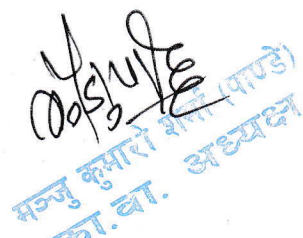 मञ्जु कुमारी शर्मा (पाण्डे)
का. वा. अध्यक्ष